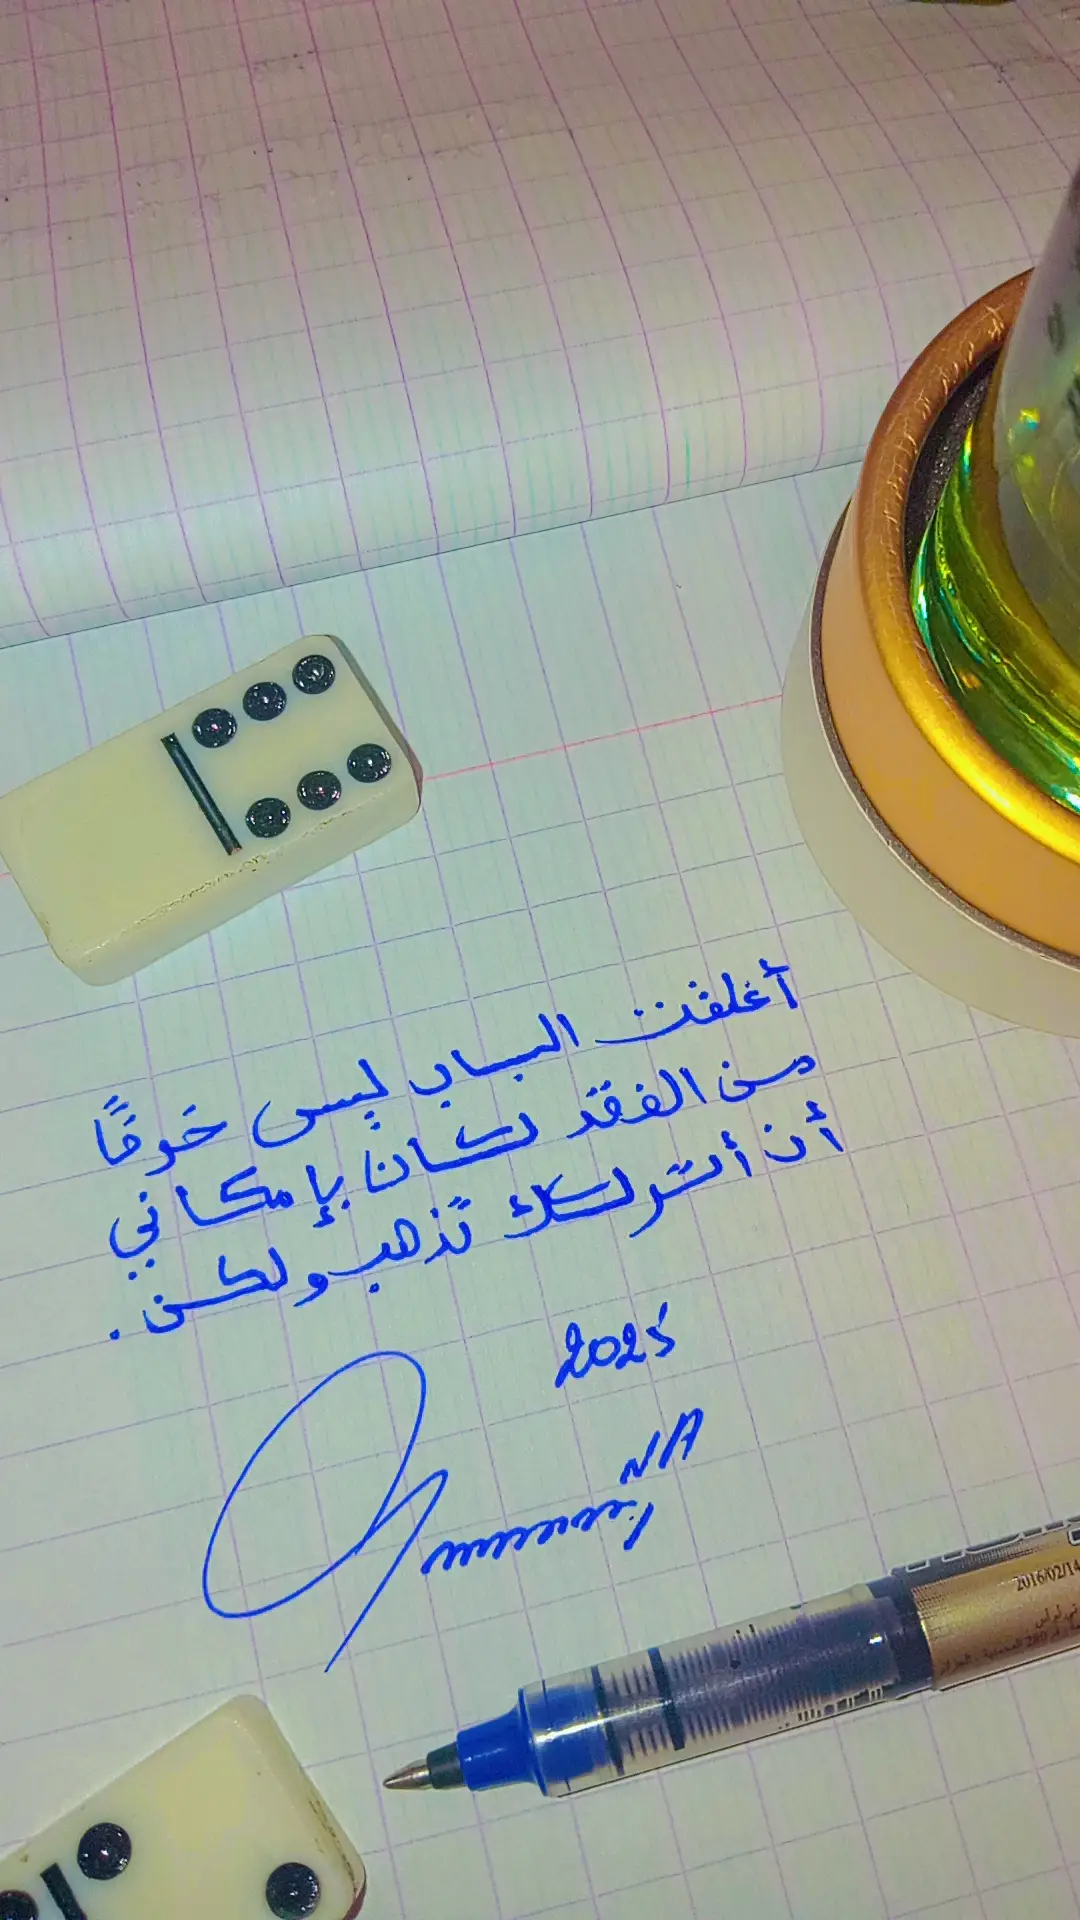 أغلقت الباب ليس خوفًا
من الفقد لكان بإمكاني
أن أتركك تذهب ولكن.
2025
NA
2016/02/14